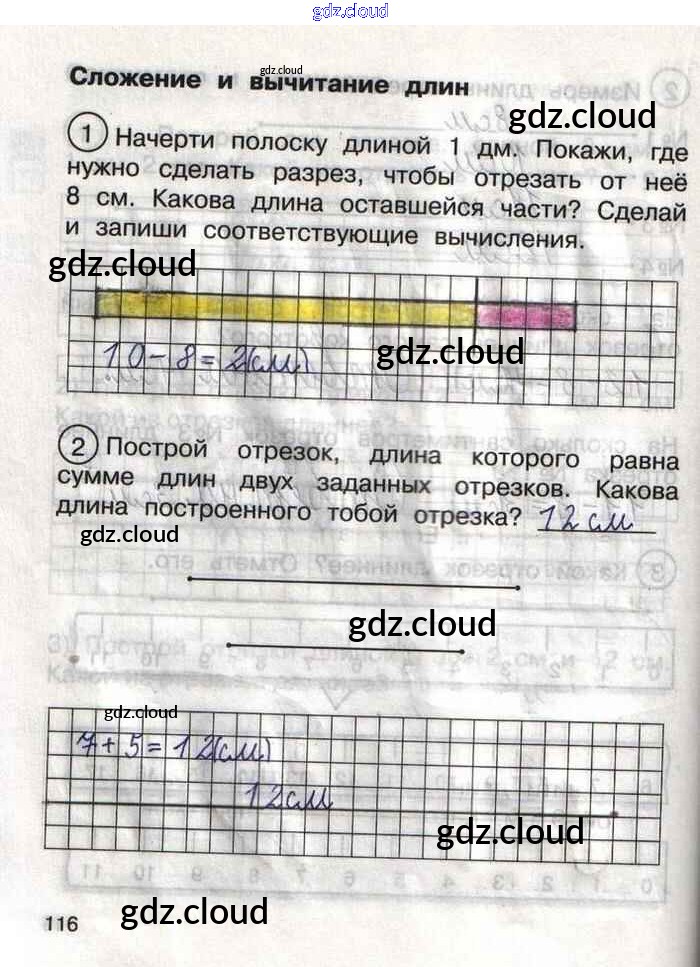 gdz.cloud
Сложение и вычитание длин
gdz.cloud
gdz.cloud
1 Начерти полоску длиной 1 дм. Покажи, где
нужно сделать разрез, чтобы отрезать от неё
8 см. Какова длина оставшейся части? Сделай
и запиши соответствующие вычисления.
gdz.cloud
10-8=2(см)
gdz.cloud
2 Построй отрезок, длина которого равна
сумме длин двух заданных отрезков. Какова
длина построенного тобой отрезка? 12 см
gdz.cloud
gdz.cloud
gdz.cloud
7+5=12(см)
12см
gdz.cloud
116
gdz.cloud